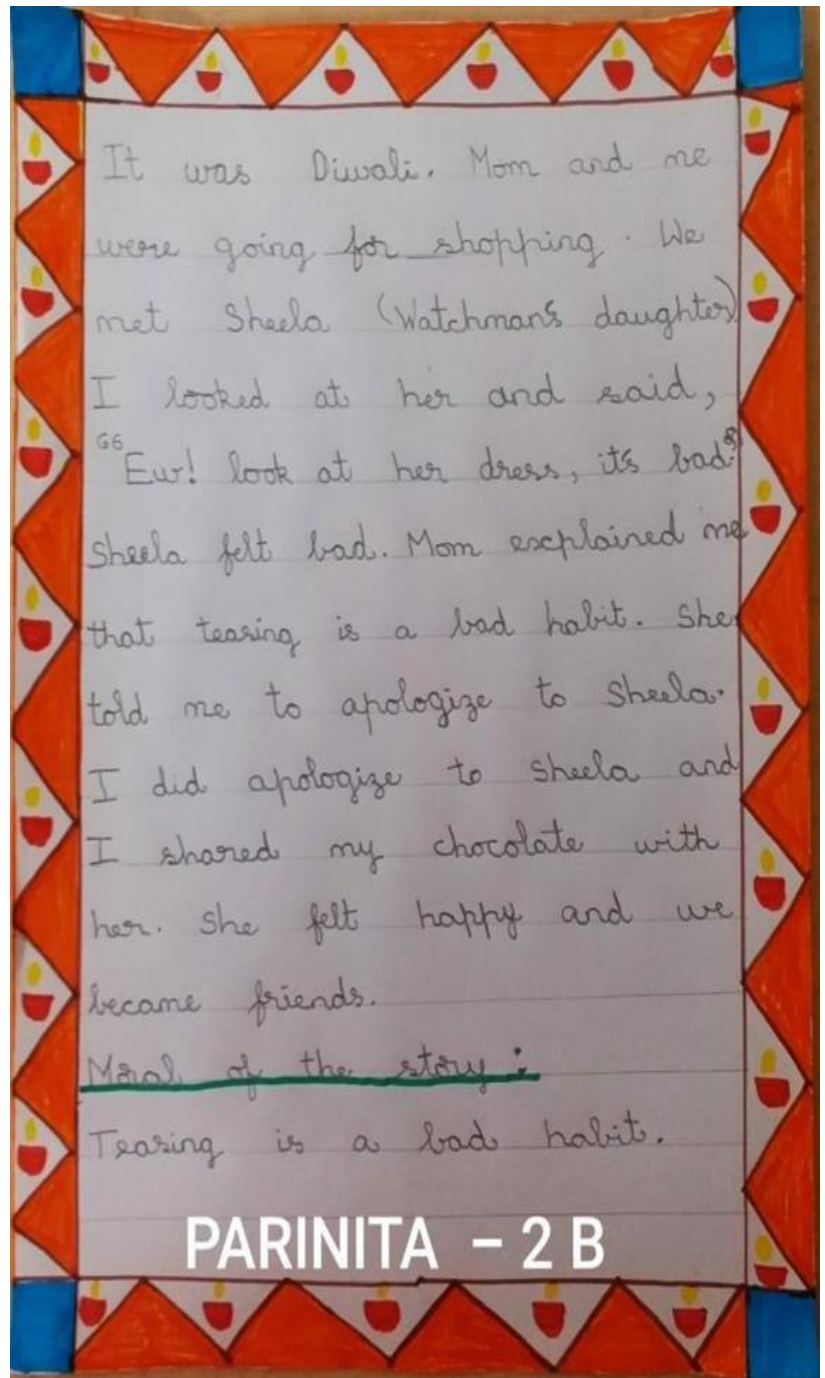 It was Diwali. Mom and me
were going for shopping. We
met Sheela (Watchman's daughter)
I looked at her and said,
"Ew! look at her dress, it's bad."
Sheela felt bad. Mom explained me
that teasing is a bad habit. She
told me to apologize to Sheela.
I did apologize to Sheela and
I shared my chocolate with
her. She felt happy and we
became friends.
Moral of the story :
Teasing is a bad habit.
PARINITA – 2 B